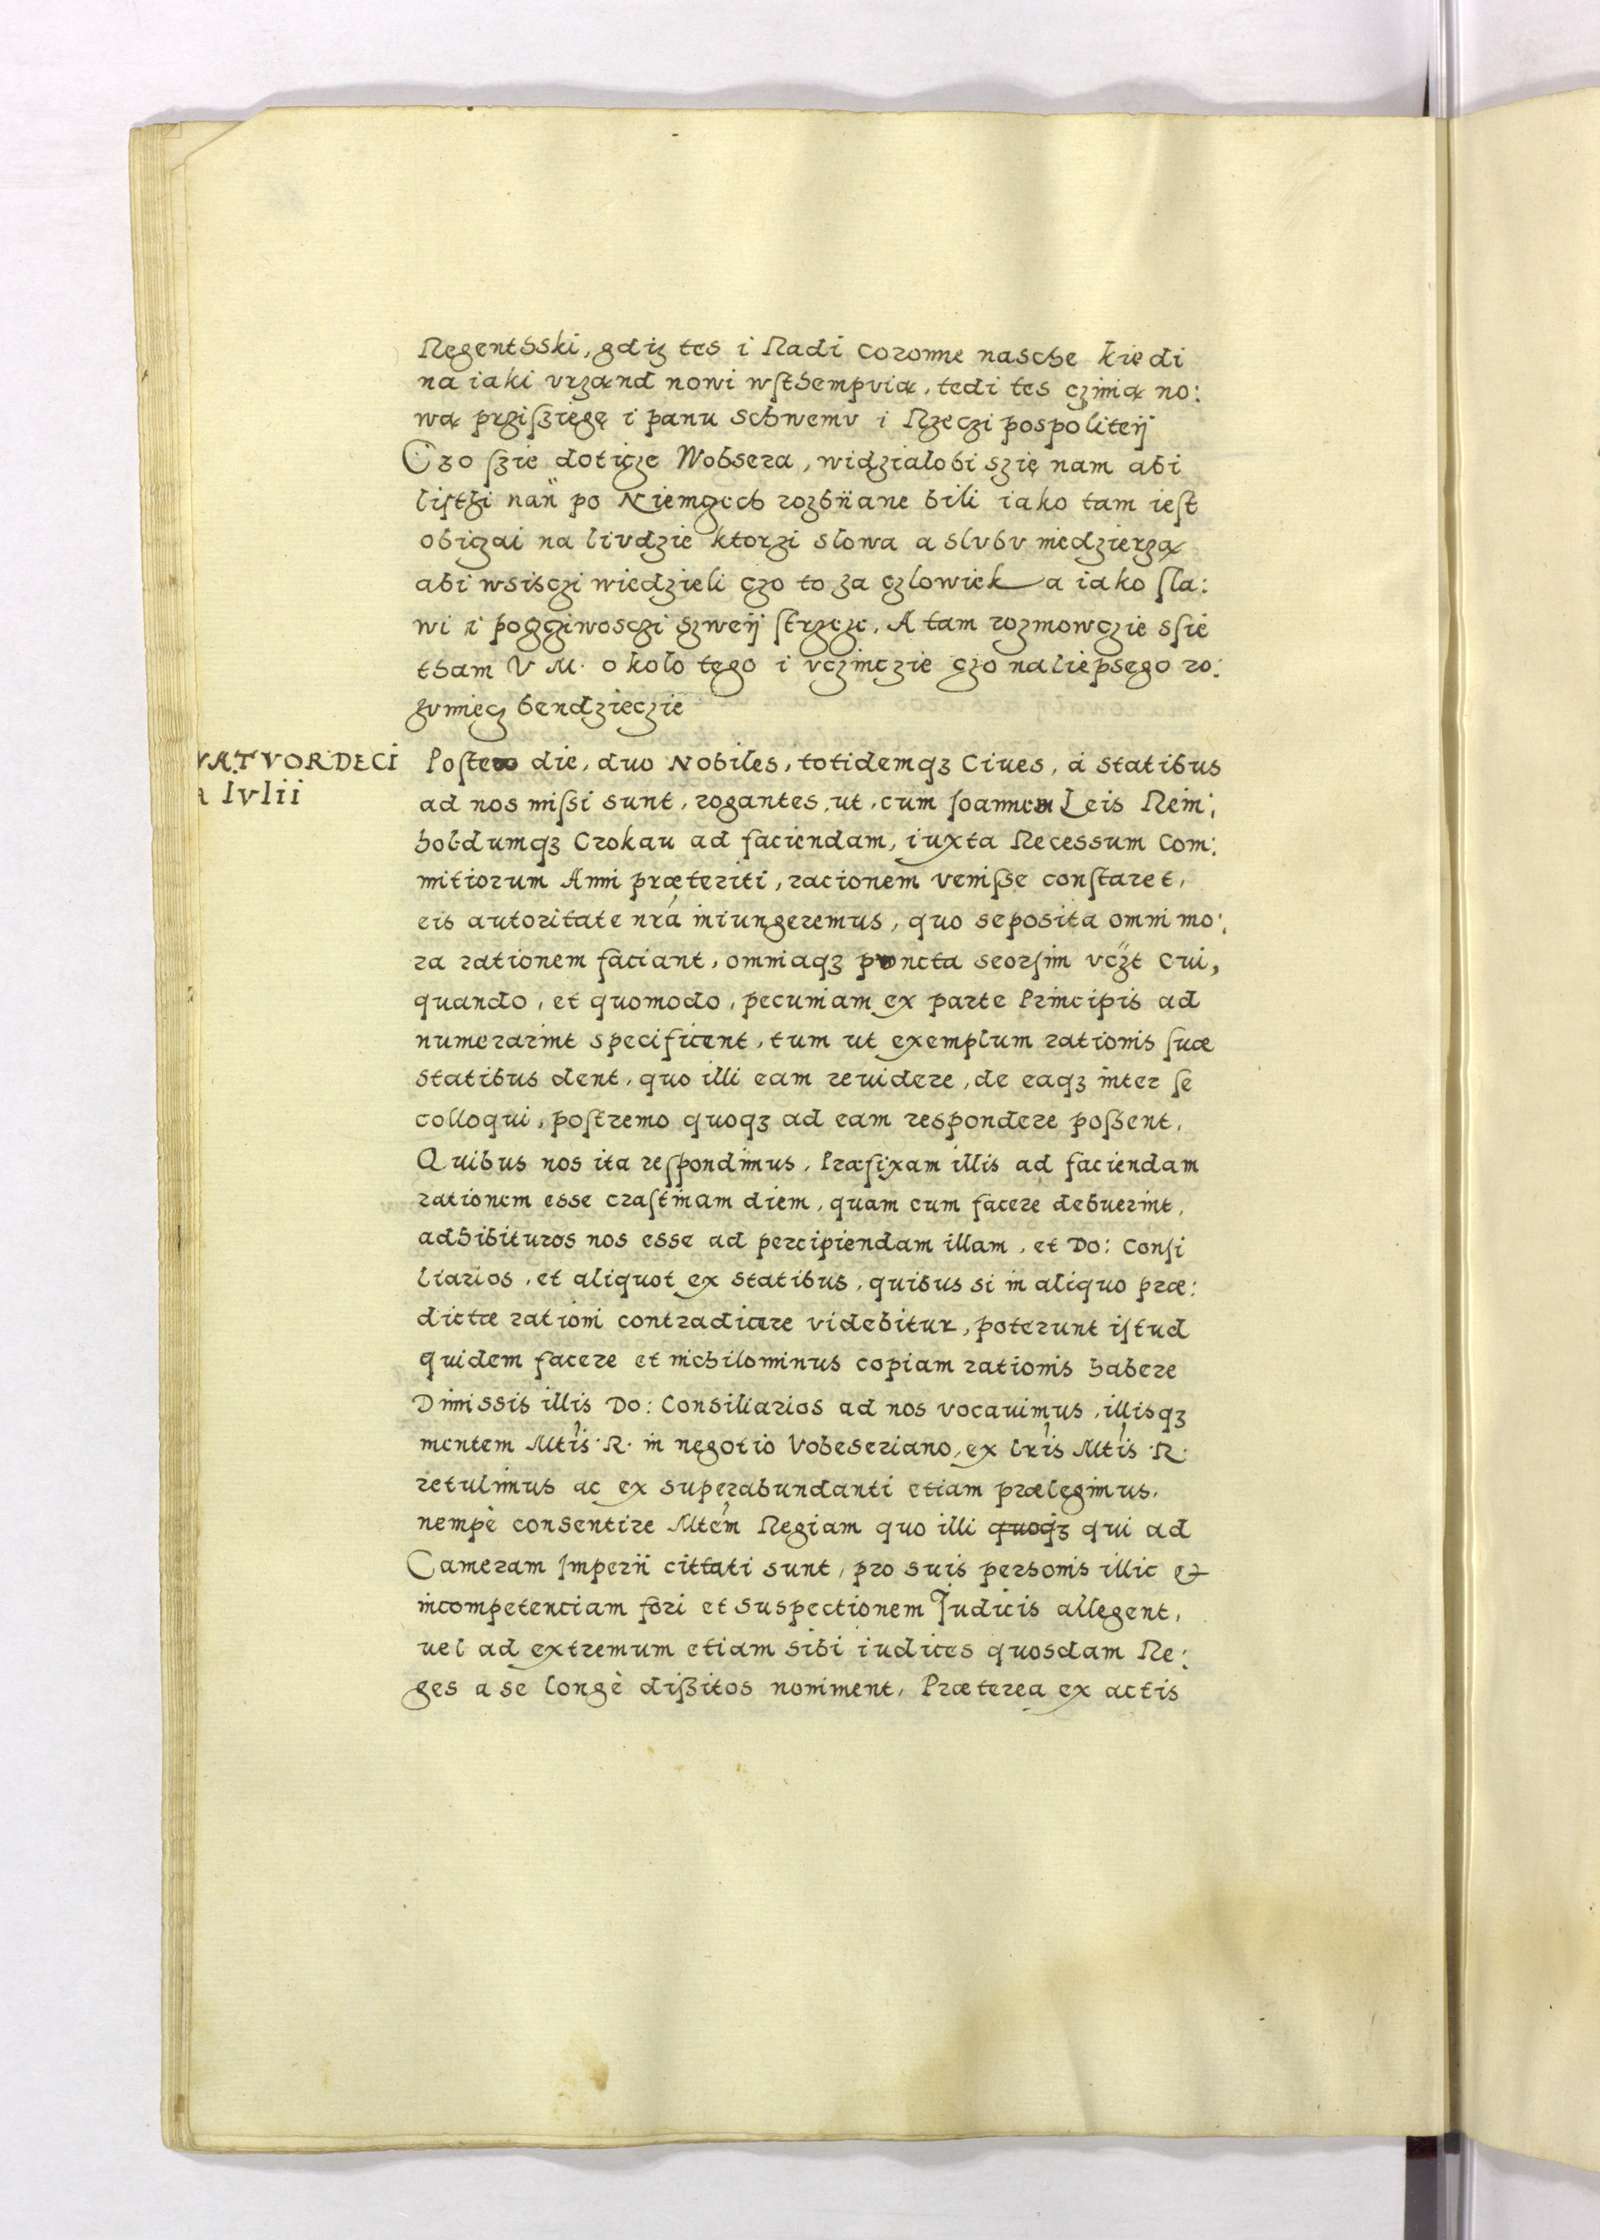 Regenthski, gdiz tes i Radi coronne nasche kiedi
na iaki vrzand nowi wsthempvią, tedi tes czinią no:
wą przisziegę i panu schwemv i Rzeczi pospoliteÿ
Czo szie doticze Wobsera, widzialobi szię nam abi
listhi nań po Niemczech rozbÿane bili iako tam iest
obiczai na livdzie ktorzi slowa a slvbv niedzierzą
abi wsisczi wiedzieli czo to za czlowiek a iako sla:
wi i poczciwosczi szweÿ strzeze. A tam rozmowczie ssie
tham V M. około tego i vczinczie czo naliepsego ro:
zvmiecz bendzieczie
VATVORDECI
a Ivlii
Postero die, duo Nobiles, totidemqꝫ Ciues, á statibus
ad nos missi sunt, rogantes, ut, cum Joannem Leis Rein:
holdumqꝫ Crokau ad faciendam, iuxta Recessum Com:
mitiorum Anni præteriti, racionem venisse constaret,
eis autoritate nrá iniungeremus, quo seposita omni mo:
ra rationem faciant, omniaqꝫ puncta seorsim vczt cui,
quando, et quomodo, pecuniam ex parte Principis ad
numerarint specificent, tum ut exemplum rationis suæ
statibus dent, quo illi eam reuidere, de eaqꝫ inter se
colloqui, postremo quoqꝫ ad eam respondere possent.
Quibus nos ita respondimus. Præfixam illis ad faciendam
rationem esse crastinam diem, quam cum facere debuerint,
adhibituros nos esse ad percipiendam illam, et Do: Consi
liarios, et aliquot ex statibus, quibus si in aliquo præ:
dictæ rationi contradicere videbitur, poterunt istud
quidem facere et nichilominus copiam rationis habere
Dimissis illis Do: Consiliarios ad nos vocauimus, illisqꝫ
mentem Mtis R. in negotio Vobeseriano, ex lris Mtis R.
retulimus ac ex superabundanti etiam prælegimus.
nempè consentire Mtem Regiam quo illi quoqꝫ qui ad
Cameram Imperii cittati sunt, pro suis personis illic &
incompetenciam fori et suspectionem Judicis allegent,
uel ad extremum etiam sibi iudices quosdam Re:
ges a se longè dissitos nominent. Præterea ex actis